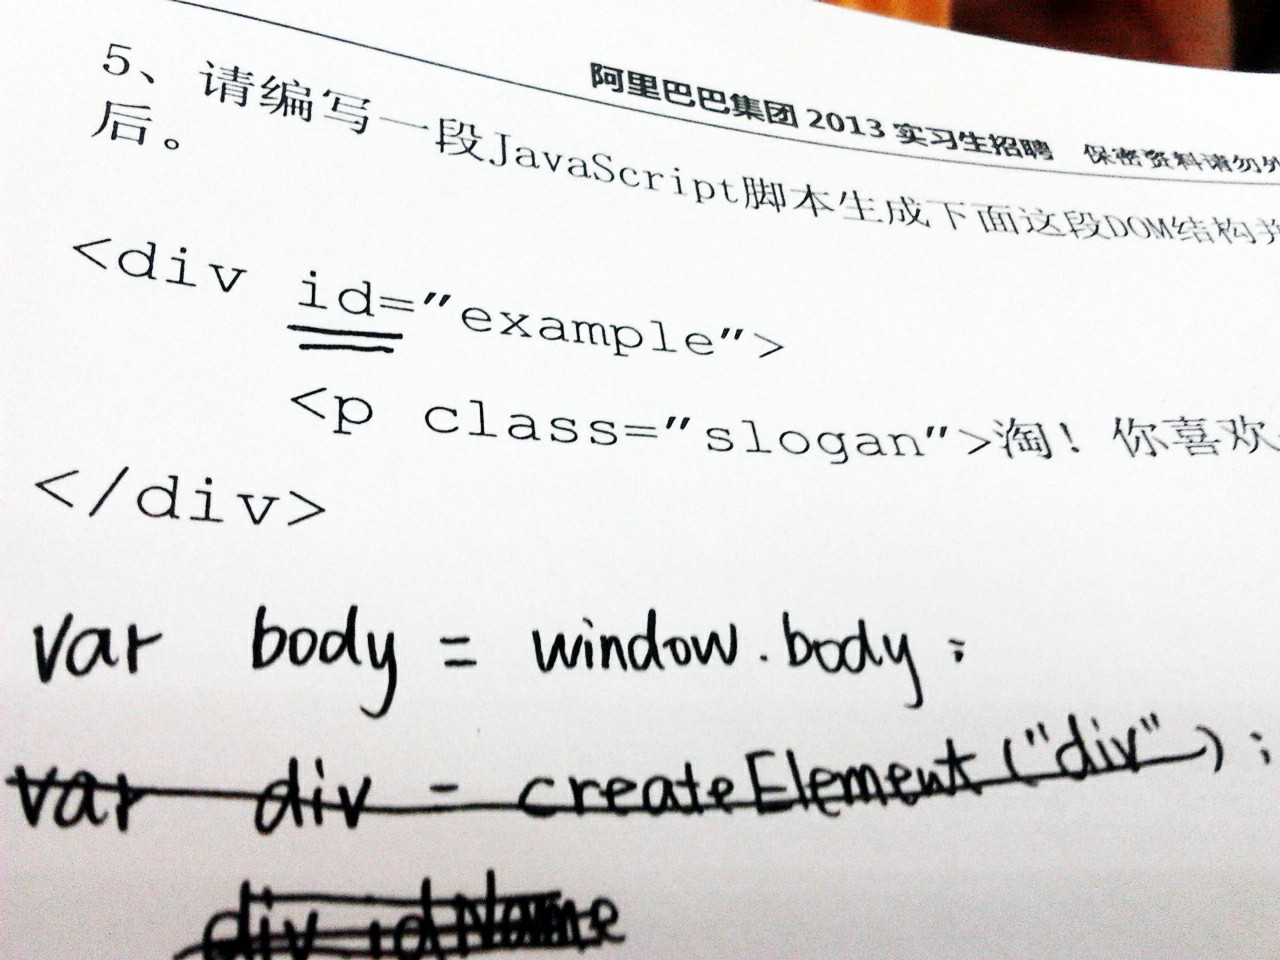 阿里巴巴集团 2013 实习生招聘 保密资料请勿外
5、请编写一段JavaScript脚本生成下面这段DOM结构并
后。
<div id="example">
<p class="slogan">淘！你喜欢
</div>
var body = window.body;
var div = createElement("div");
div.idName